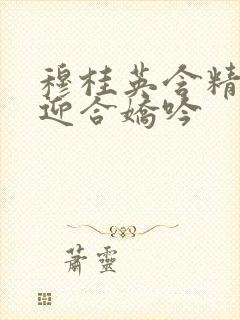 穆桂英含精
迎合嬌吟
蕭靈